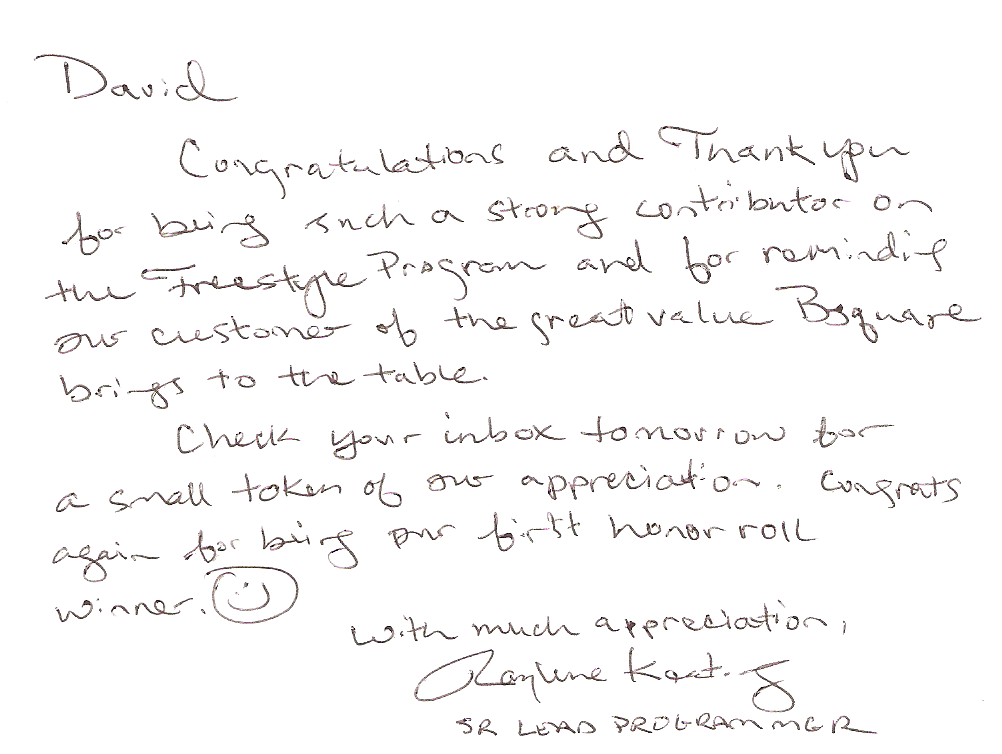 David
Congratulations and Thank you
for being such a strong contributor on
the Freestyle Program and for reminding
our customer of the great value Bsquare
brings to the table.
Check your inbox tomorrow for
a small token of our appreciation. Congrats
again for being our first honor roll
winner.
With much appreciation,
Raylene
SR LEAD PROGRAMMER